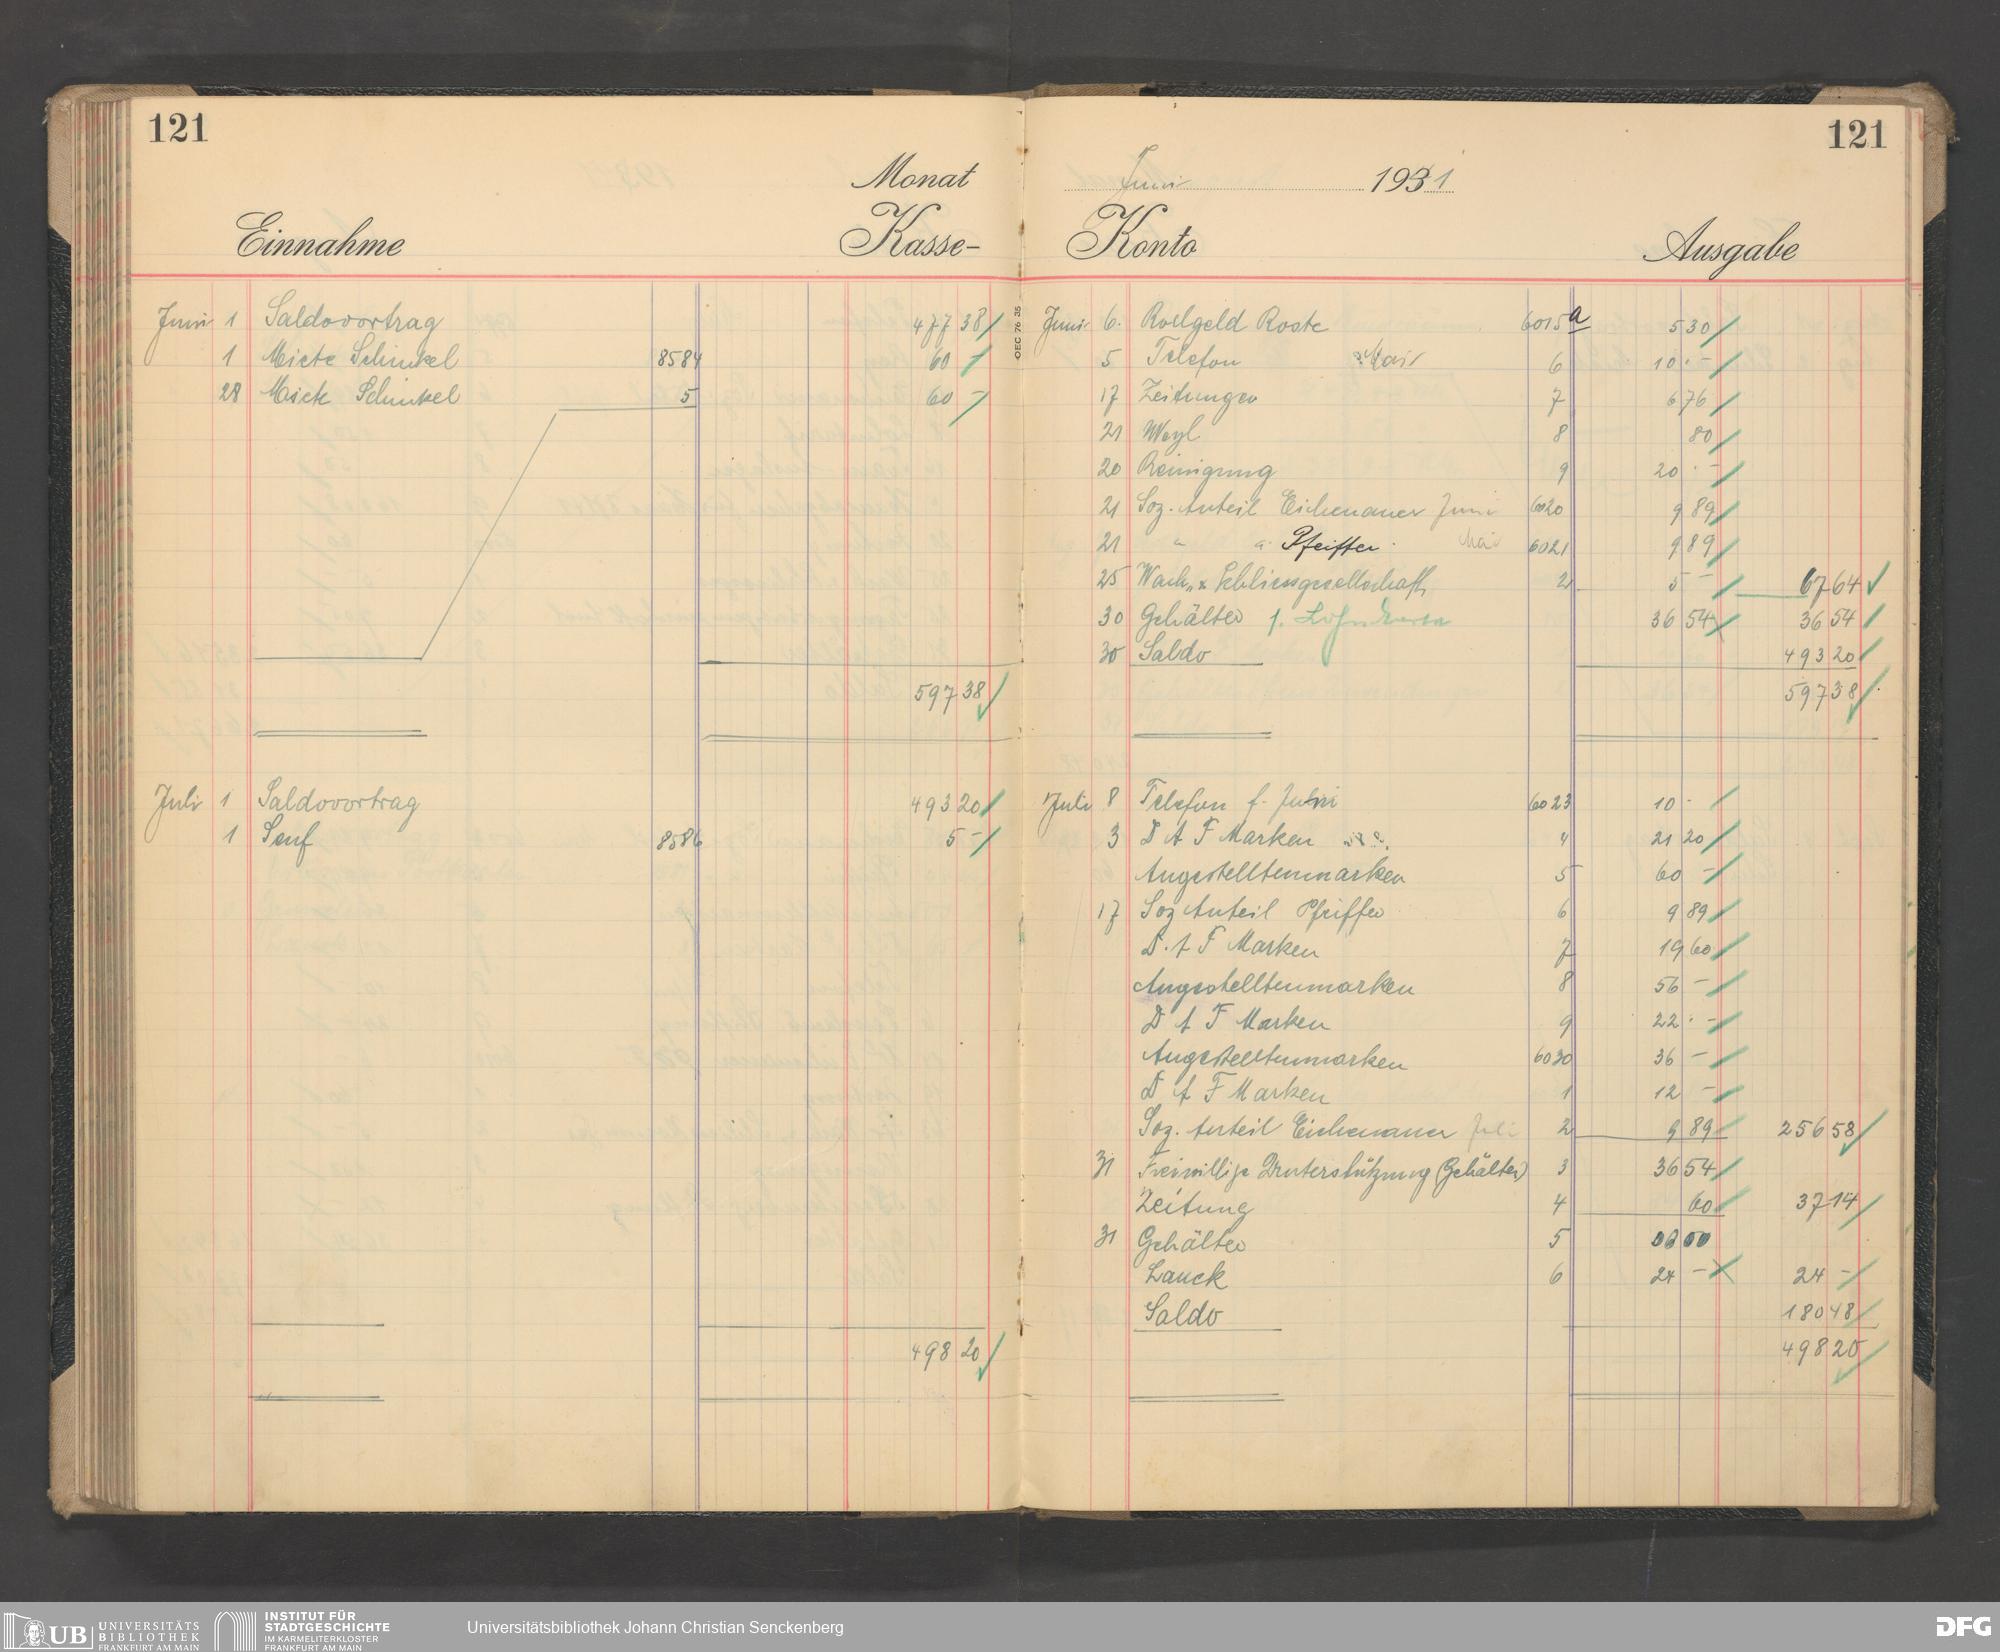 121
Monat
Einnahme Kasse-
Juni 1 Saldovortrag 477 38
1 Miete Schinkel 8584 60 -
28 Miete Schinkel 5 60 -
597 38
Juli 1 Saldovortrag 493 20
1 Senf 8586 5 -
498 20
121
Juni 1931
Konto Ausgabe
Juni 6. Rollgeld Roste 6015a 5 30
5 Telefon Mai 6 10 . -
17 Zeitungen 7 6 76
21 Weyl 8 80
20 Reinigung 9 20 . -
21 Soz. Anteil Eichenauer Juni 6020 9 89
21 " " Pfeiffer Mai 6021 9 89
25 Wach- & Schliessgesellschaft 2 5 - 67 64
30 Gehälter f. 36 54 36 54
30 Saldo 493 20
597 38
Juli 8 Telefon f. Juni 6023 10 -
3 D A F Marken 4 21 20
Angestelltenmarken 5 60 -
17 Soz Anteil Pfeiffer 6 9 89
D. A F Marken 7 19 60
Angestelltenmarken 8 56 -
D A F Marken 9 22 . -
Angestelltenmarken 6030 36 -
D A F Marken 1 12 -
Soz. Anteil Eichenauer Juli 2 9 89 256 58
31 Freiwillige Unterstützung (Gehälter) 3 36 54
Zeitung 4 60 37 14
31 Gehälter 5
Lauck 6 24 - 24 -
Saldo 180 48
498 20
OEC 76 35
UB UNIVERSITÄTS
BIBLIOTHEK
FRANKFURT AM MAIN
INSTITUT FÜR
STADTGESCHICHTE
IM KARMELITERKLOSTER
FRANKFURT AM MAIN
Universitätsbibliothek Johann Christian Senckenberg
DFG